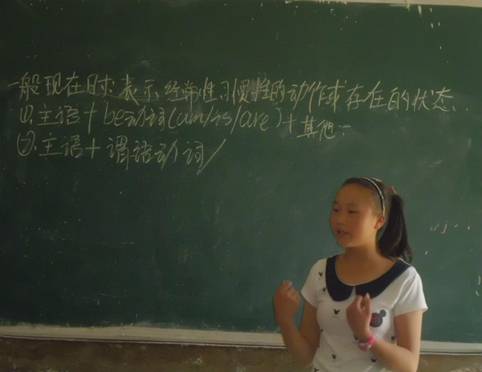 一般现在时表示经常性习惯性的动作或存在的状态.
①.主语+be动词(am/is/are)+其他
②.主语+谓语动词